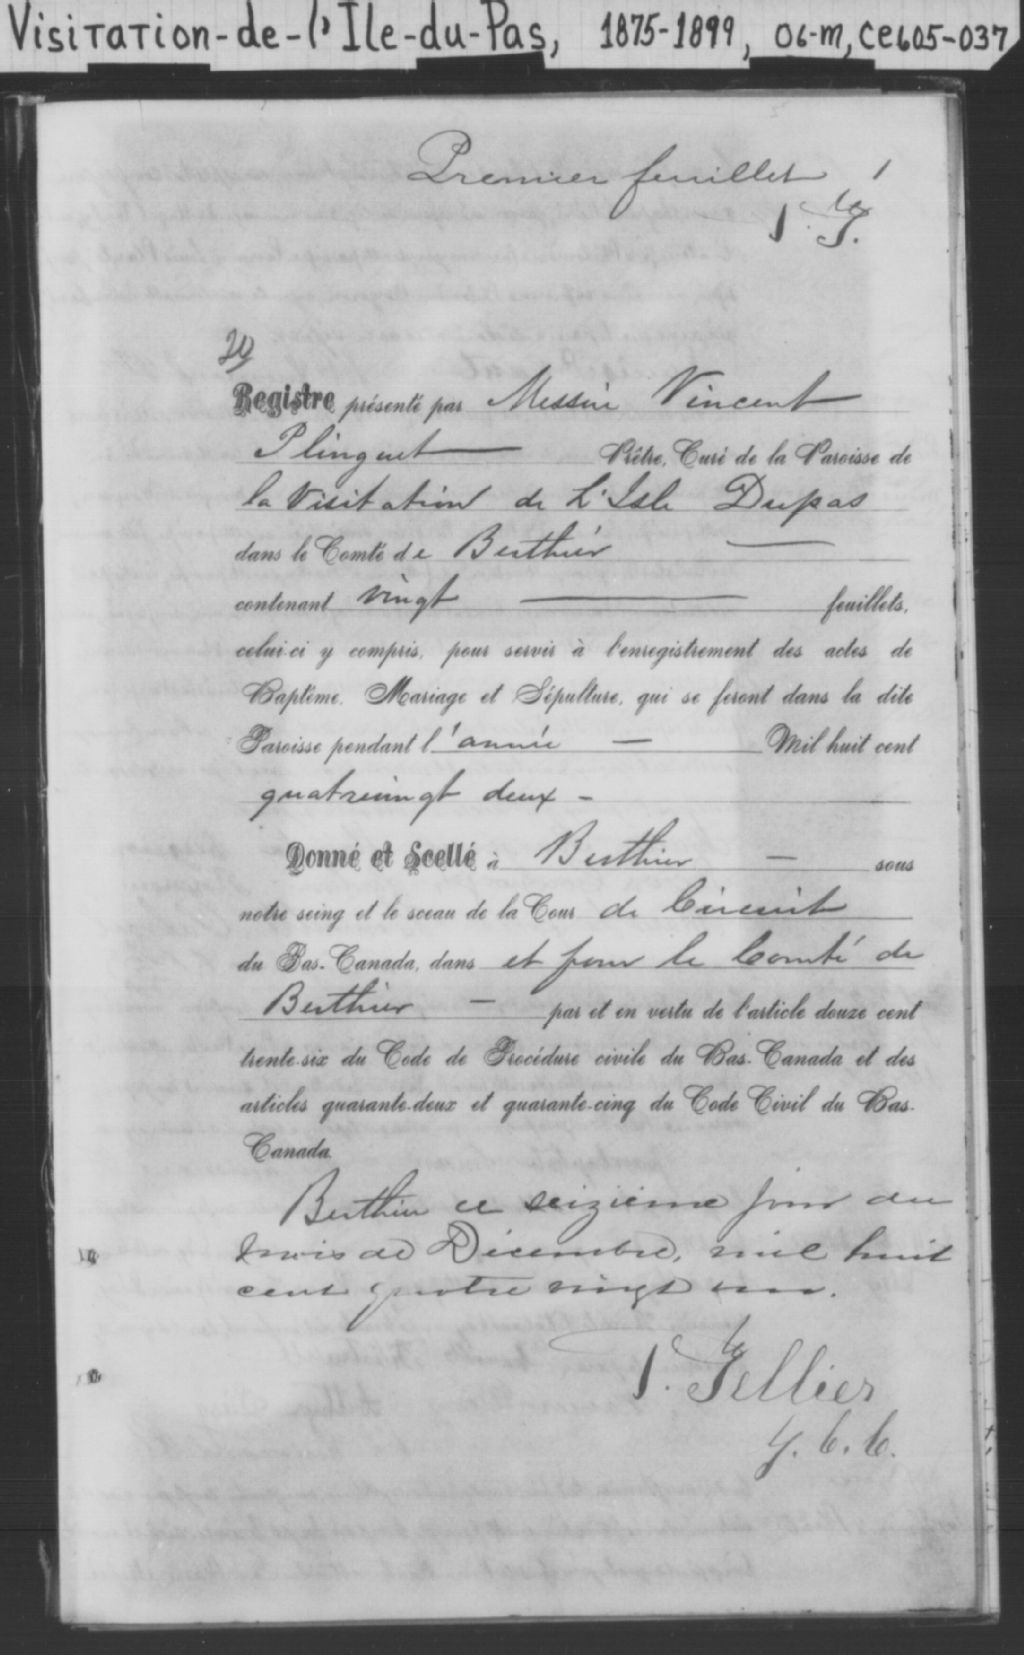 Visitation-de-l'Ile-du-Pas, 1875-1899, 06-m, CE605-037
Premier feuillet 1
P. T.
Registre présenté par Messire Vincent
Plinguet Prêtre, Curé de la Paroisse de
la Visitation de L'Isle Dupas
dans le Comté de Berthier
contenant vingt feuillets,
celui-ci y compris, pour servir à l'enregistrement des actes de
Baptême, Mariage et Sépulture, qui se feront dans la dite
Paroisse pendant l'année Mil huit cent
quatrevingt deux -
Donné et Scellé à Berthier sous
notre seing et le sceau de la Cour de Circuit
du Bas-Canada, dans et pour le Comté de
Berthier par et en vertu de l'article douze cent
trente-six du Code de Procédure civile du Bas-Canada et des
articles quarante-deux et quarante-cinq du Code Civil du Bas-
Canada.
Berthier ce seizième jour du
mois de Décembre, mil huit
cent quatre vingt un.
P. Tellier
G. C. C.